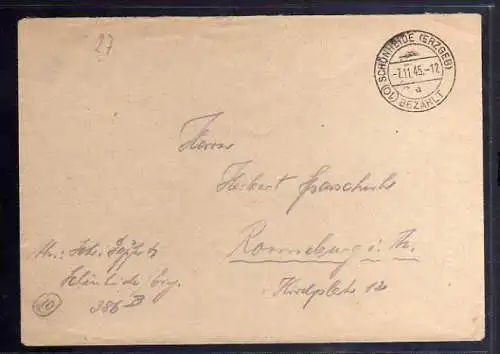 27
(10) SCHÖNHEIDE (ERZGEB)
-7.11.45.-12
a
BEZAHLT
Herrn
Herbert
Ronneburg i. Th.
Kirchplatz 12
Schönheide Erzg.
386 B
10